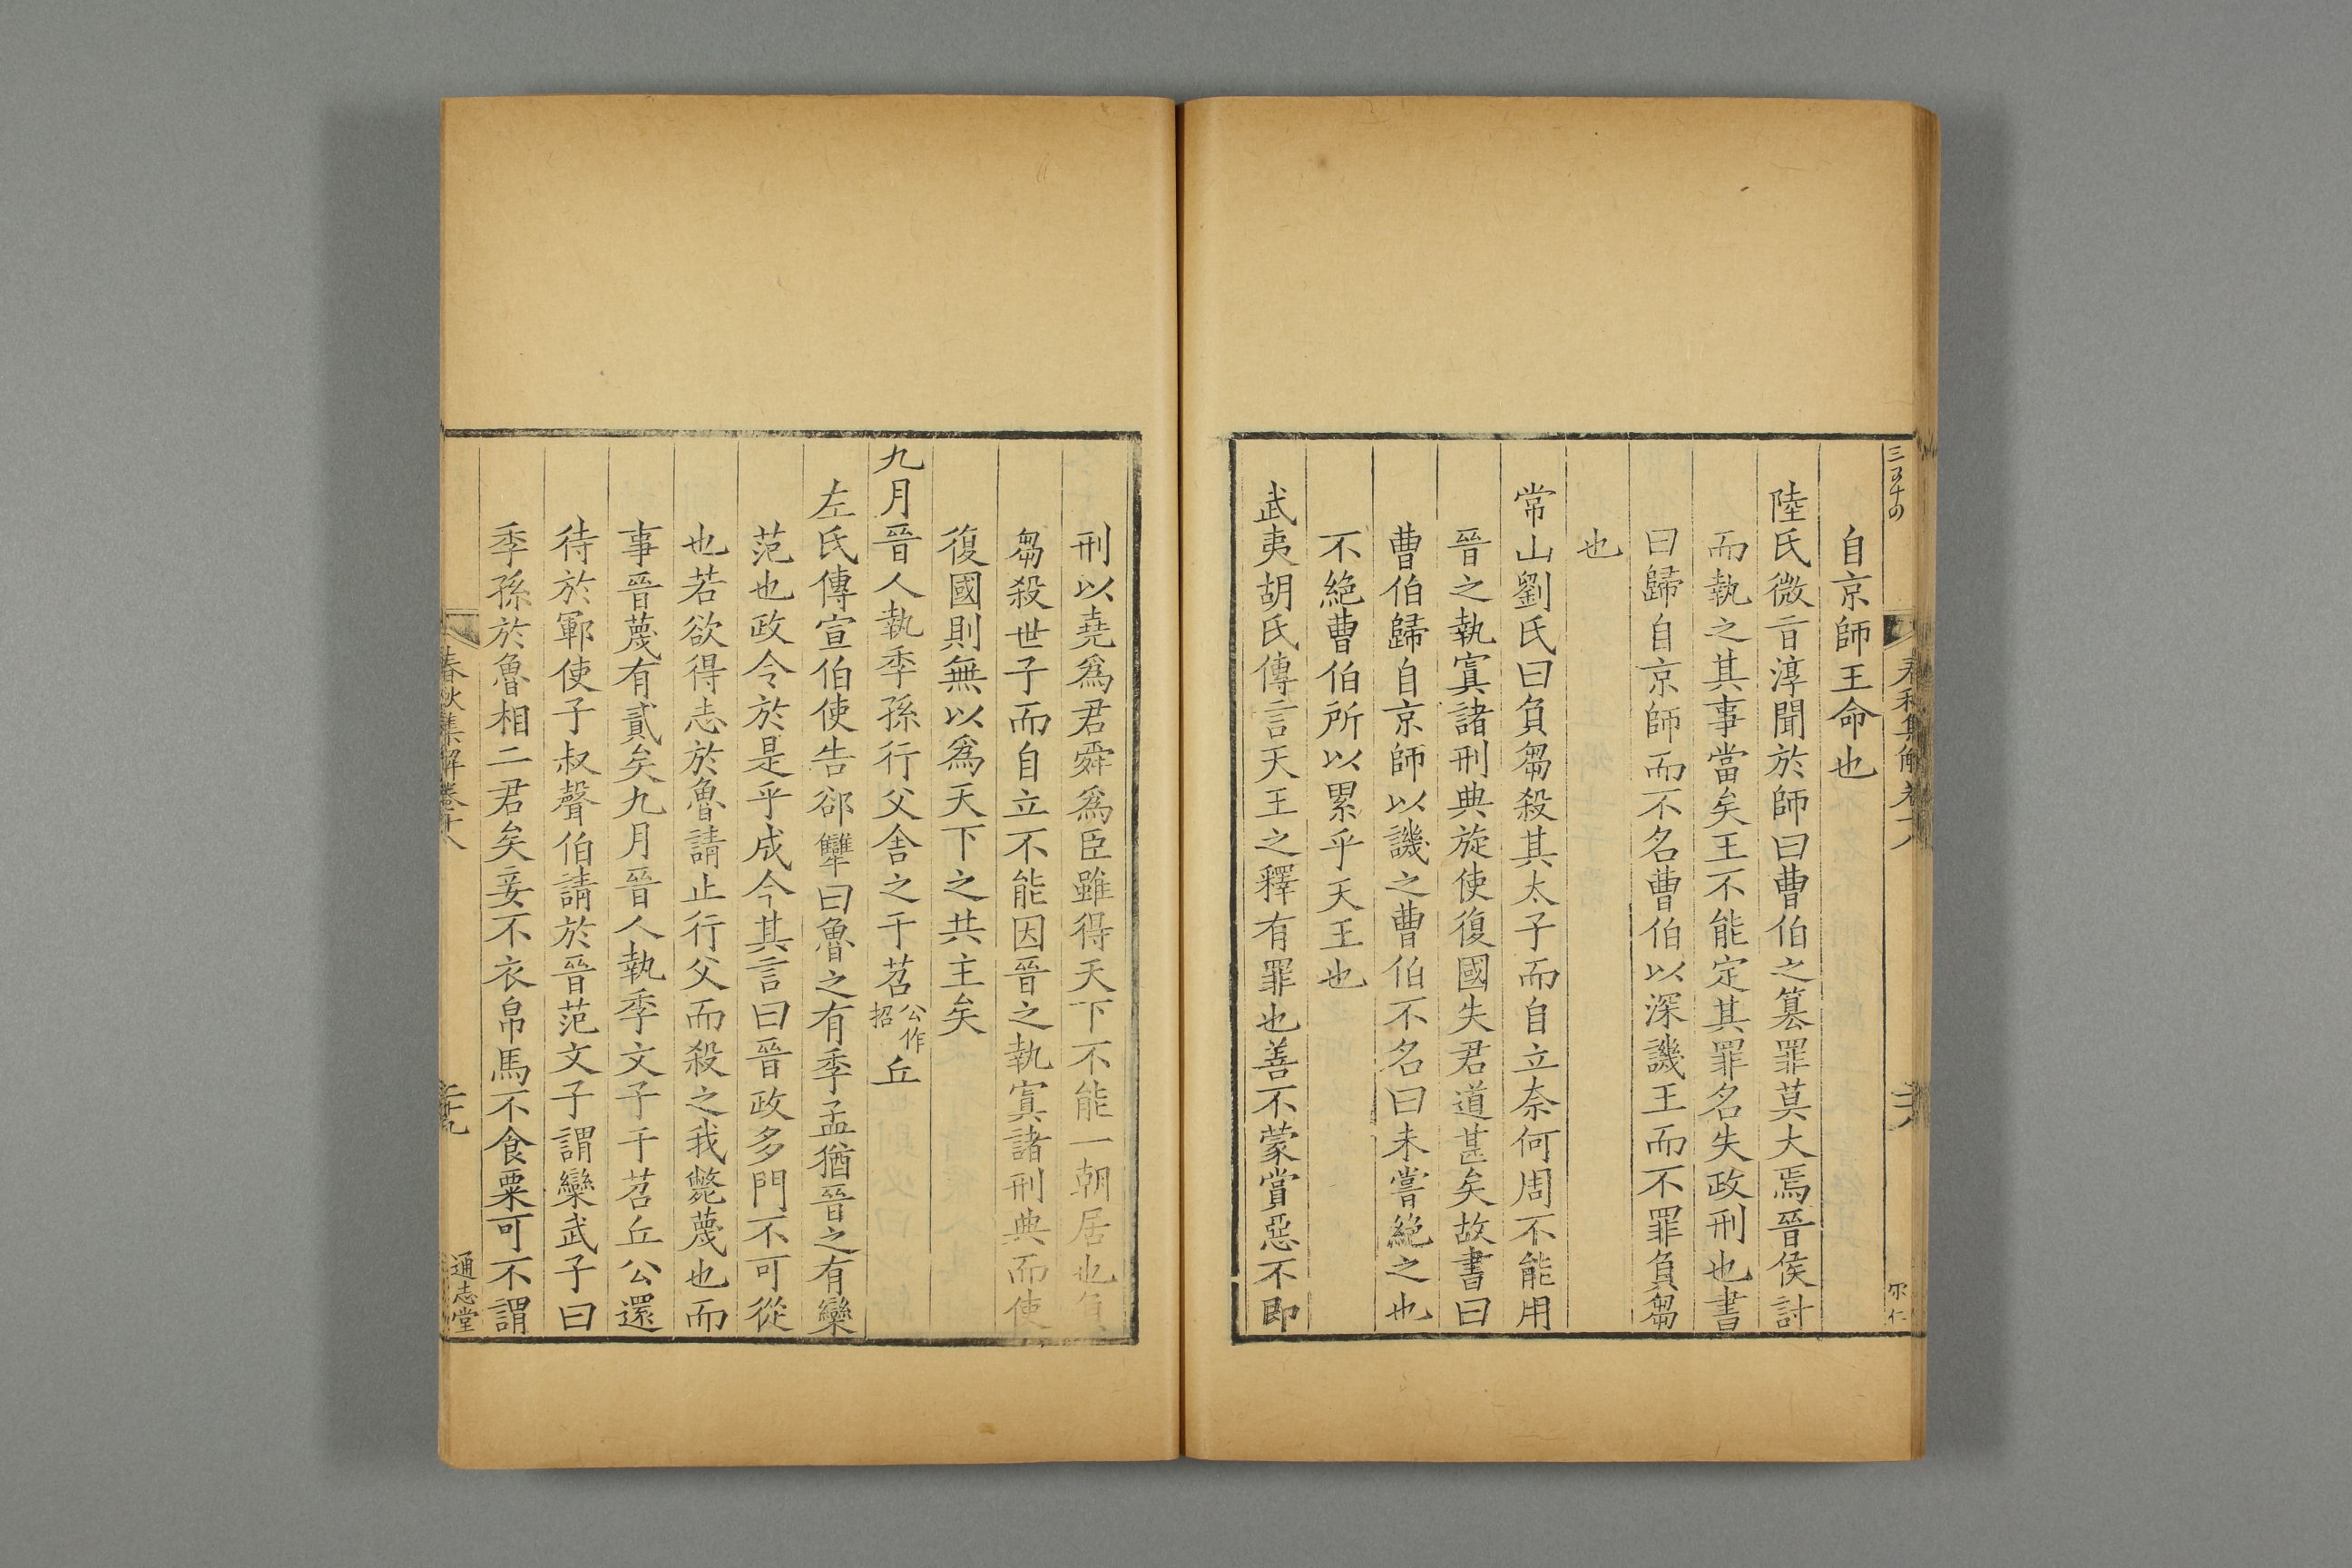 三百五十四
春秋集解卷十八
二十八
尔仁
自京師王命也
陸氏微旨淳聞於師曰曹伯之篡罪莫大焉晉侯討
而執之其事當矣王不能定其罪名失政刑也書
曰歸自京師而不名曹伯以深譏王而不罪負芻
也
常山劉氏曰負芻殺其太子而自立奈何周不能用
晉之執寘諸刑典旋使復國失君道甚矣故書曰
曹伯歸自京師以譏之曹伯不名曰未嘗絕之也
不絕曹伯所以累乎天王也
武夷胡氏傳言天王之釋有罪也善不蒙賞惡不即
刑以堯爲君舜爲臣雖得天下不能一朝居也負
芻殺世子而自立不能因晉之執寘諸刑典而使
復國則無以爲天下之共主矣
九月晉人執季孫行父舍之于苕公作招丘
左氏傳宣伯使告郤犨曰魯之有季孟猶晉之有欒
范也政令於是乎成今其言曰晉政多門不可從
也若欲得志於魯請止行父而殺之我斃蔑也而
事晉蔑有貳矣九月晉人執季文子于苕丘公還
待於鄆使子叔聲伯請於晉范文子謂欒武子曰
季孫於魯相二君矣妾不衣帛馬不食粟可不謂
春秋集解卷十八
二十九
通志堂